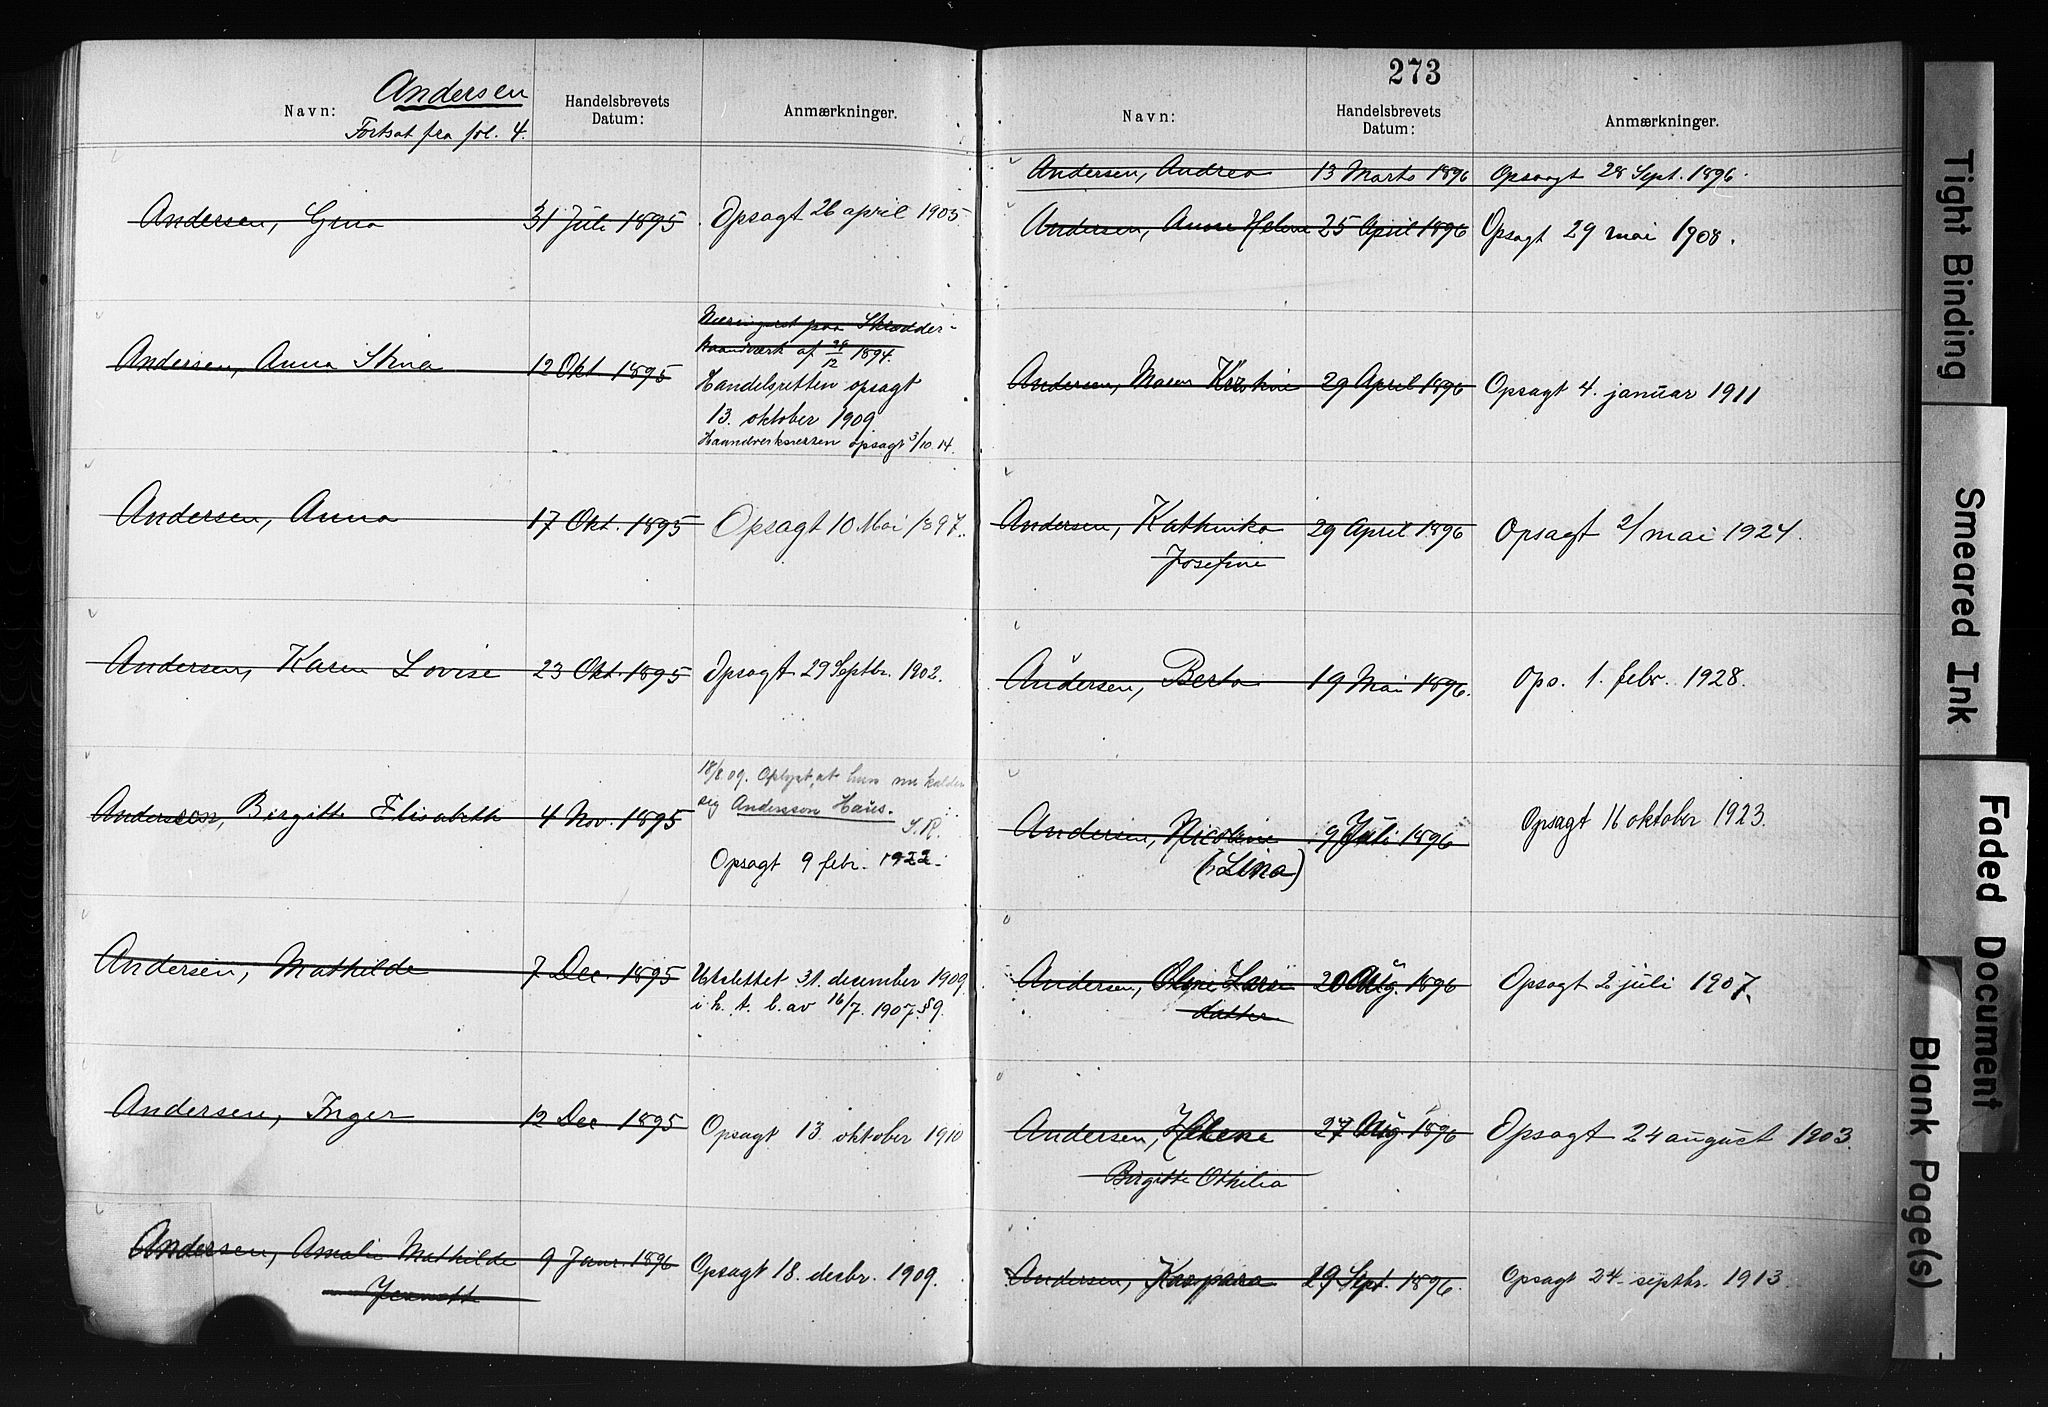 Andersen
Navn: Handelsbrevets Datum: Anmærkninger.
Fortsat fra fol. 4.
Andersen, Gina 31 Juli 1895 Opsagt 26 april 1905
Næringsret paa Skrædder-
haandværk af 28/12 1894.
Andersen, Anna Stina 12 Okt 1895 Handelsretten opsagt
13. oktober 1909
Haandverksretten opsagt 3/10.14.
Andersen, Anna 17 Okt. 1895 Opsagt 10 Mai 1897.
Andersen, Karen Lovise 23 Okt. 1895 Opsagt 29 Septbr. 1902.
18/8.09. Oplyst, at hun nu kalder
sig Andersson Haus.
S.R.
Andersen, Birgitte Elisabeth 4 Nov. 1895
Opsagt 9 febr. 1922.
Andersen, Mathilde 7 Dec. 1895 Utslettet 31. december 1909
i h. t. l. av 16/7. 1907 § 9.
Andersen, Inger 12 Dec 1895 Opsagt 13. oktober 1910
Andersen, Amalie Mathilde 9 Janr. 1896 Opsagt 18. desbr. 1909.
273
Navn: Handelsbrevets Datum: Anmærkninger.
Andersen, Andrea 13 Marts 1896 Opsagt 28 Sept. 1896.
Andersen, Anne Helene 25 April 1896 Opsagt 29 mai 1908.
Andersen, Maren Kristine 29 April 1896 Opsagt 4. januar 1911
Andersen, Kathinka 29 April 1896 Opsagt 2/ mai 1924.
Josefine
Andersen, Berta 19 Mai 1896. Ops. 1. febr. 1928.
Andersen, Nicoline 9 Juli 1896 Opsagt 16 oktober 1923.
(Lina)
Andersen, Olgine Lars 20 Aug. 1896 Opsagt 2 juli 1907.
datter
Andersen, Helene 27 Aug. 1896 Opsagt 24 august 1903.
Birgitte Othilia
Andersen, Kaspara 29 Sept. 1896. Opsagt 24. septbr. 1913.
Tight Binding
Smeared Ink
Faded Document
Blank Page(s)